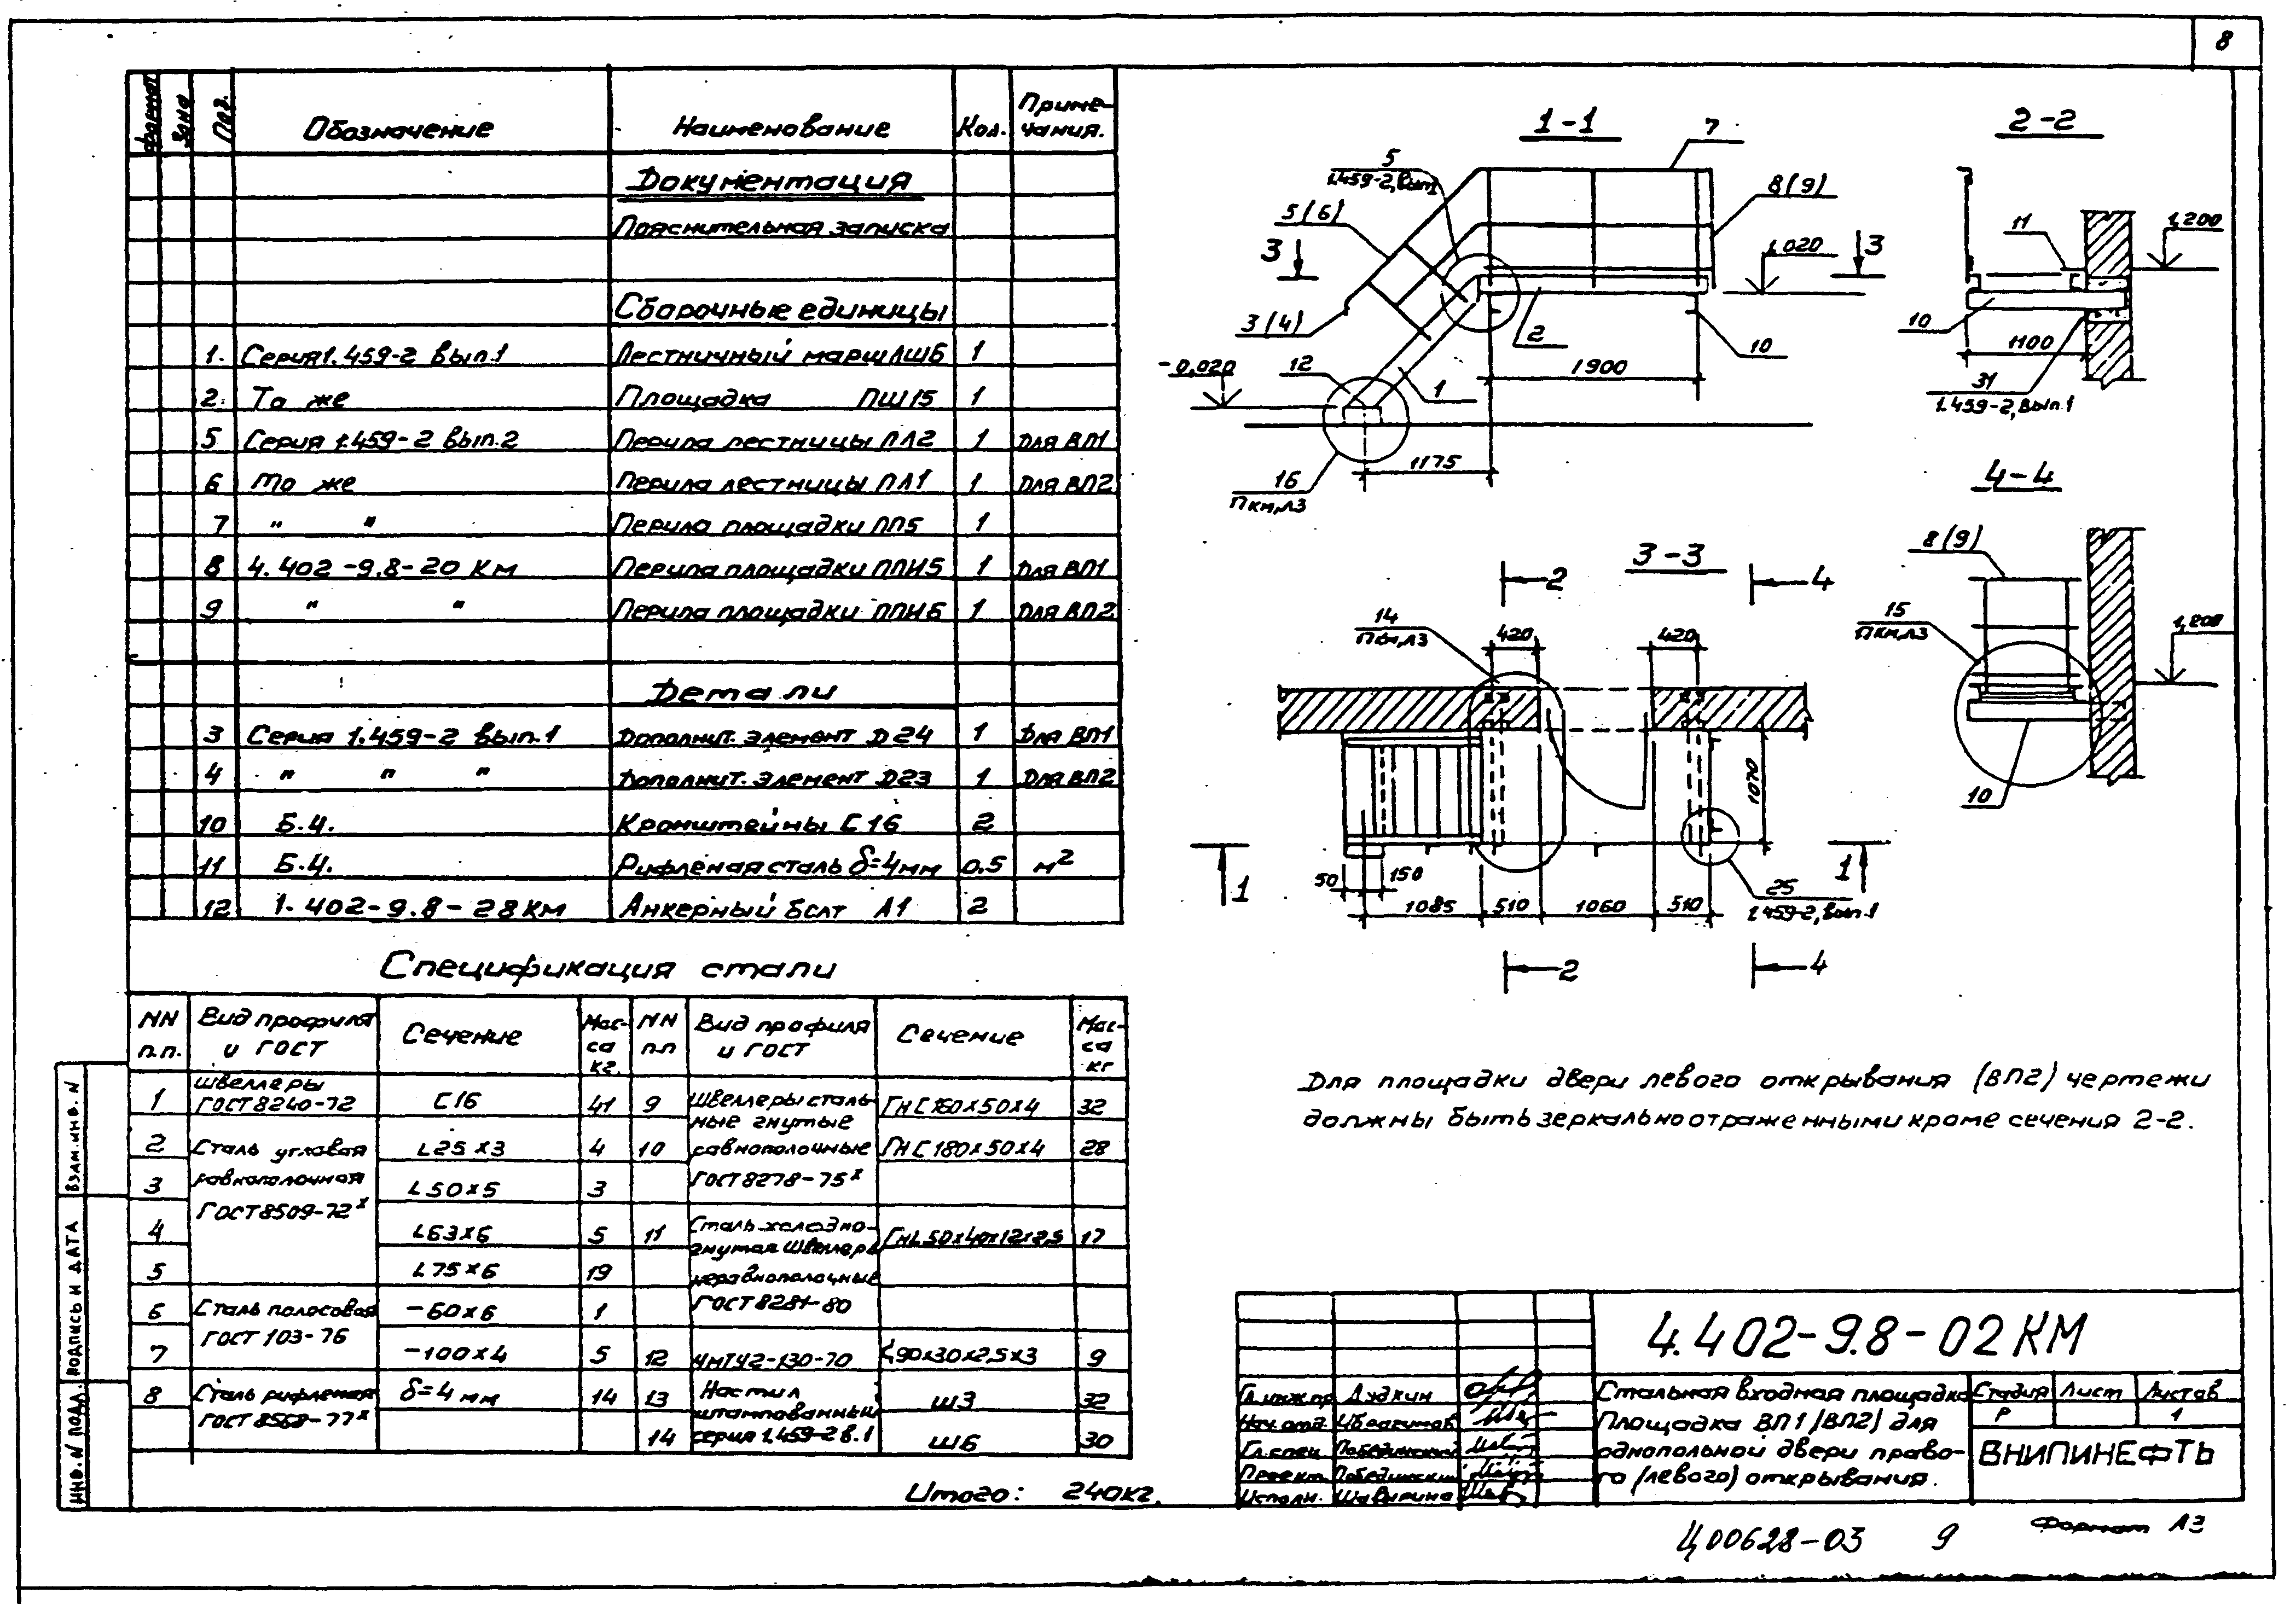 8
Формат Зона Поз. Обозначение Наименование Кол. Приме-
чания.
Документация
Пояснительная записка
Сборочные единицы
1. Серия 1.459-2 вып.1 Лестничный марш ЛШ6 1
2. То же Площадка ПШ15 1
5 Серия 1.459-2 вып.2 Перила лестницы ПЛ2 1 Для ВП1
6 То же Перила лестницы ПЛ1 1 Для ВП2
7 " " Перила площадки ПП5 1
8 4.402-9.8-20 КМ Перила площадки ППН5 1 Для ВП1
9 " " Перила площадки ППН6 1 Для ВП2
Детали
3 Серия 1.459-2 вып.1 Дополнит. элемент Д24 1 Для ВП1
4 " " " Дополнит. элемент Д23 1 Для ВП2
10 Б.Ч. Кронштейны С16 2
11 Б.Ч. Рифленая сталь δ=4мм 0.5 м²
12 1-402-9.8-28КМ Анкерный болт А1 2
Спецификация стали
NN п.п. Вид профиля и ГОСТ Сечение Мас-са кг. NN п.п Вид профиля и ГОСТ Сечение Мас-са кг
1 Швеллеры ГОСТ 8240-72 С16 41
2 Сталь угловая L25×3 4
3 равнополочная L50×5 3
ГОСТ 8509-72ˣ
4 L63×6 5
5 L75×6 19
6 Сталь полосовая -60×6 1
ГОСТ 103-76
7 -100×4 5
8 Сталь рифленая δ=4мм 14
ГОСТ 8568-77ˣ
9 Швеллеры сталь- ГН С160×50×4 32
ные гнутые
10 равнополочные ГН С180×50×4 28
ГОСТ 8278-75ˣ
11 Сталь холодно- ГнL50×40×12×2,5 17
гнутая швеллеры
неравнополочные
ГОСТ 8281-80
12 ЧМТУ2-130-70 90×30×2,5×3 9
13 Настил Ш3 32
штампованный
14 серия 1.459-2 в.1 Ш6 30
Итого: 240кг.
1-1
7
5
1.459-2, вып1
5(6)
8(9)
3
1,020
3
3(4)
2
10
-0,020
12
1
1900
1175
16
ПКМ,Л3
2-2
11
1,200
10
1100
31
1.459-2, вып.1
4-4
8(9)
15
ПКМ,Л3
1,200
10
3-3
2
4
14
ПКМ,Л3
420
420
1070
1
1
50
150
25
1.459-2, вып.1
1085
510
1060
510
2
4
Для площадки двери левого открывания (ВП2) чертежи
должны быть зеркально отраженными кроме сечения 2-2.
4.402-9.8-02КМ
Гл.инж.пр
Нач.отд. Ибрагимов
Гл.спец. Победински
Проект. Победински
Исполн.
Стальная входная площадка
Площадка ВП1 (ВП2) для
однопольной двери право-
го (левого) открывания.
Стадия Лист Листов
Р 1
ВНИПИНЕФТЬ
Ц00628-03 9
Формат А3
Взам.инв. N
Подпись и дата
Инв. N подл.